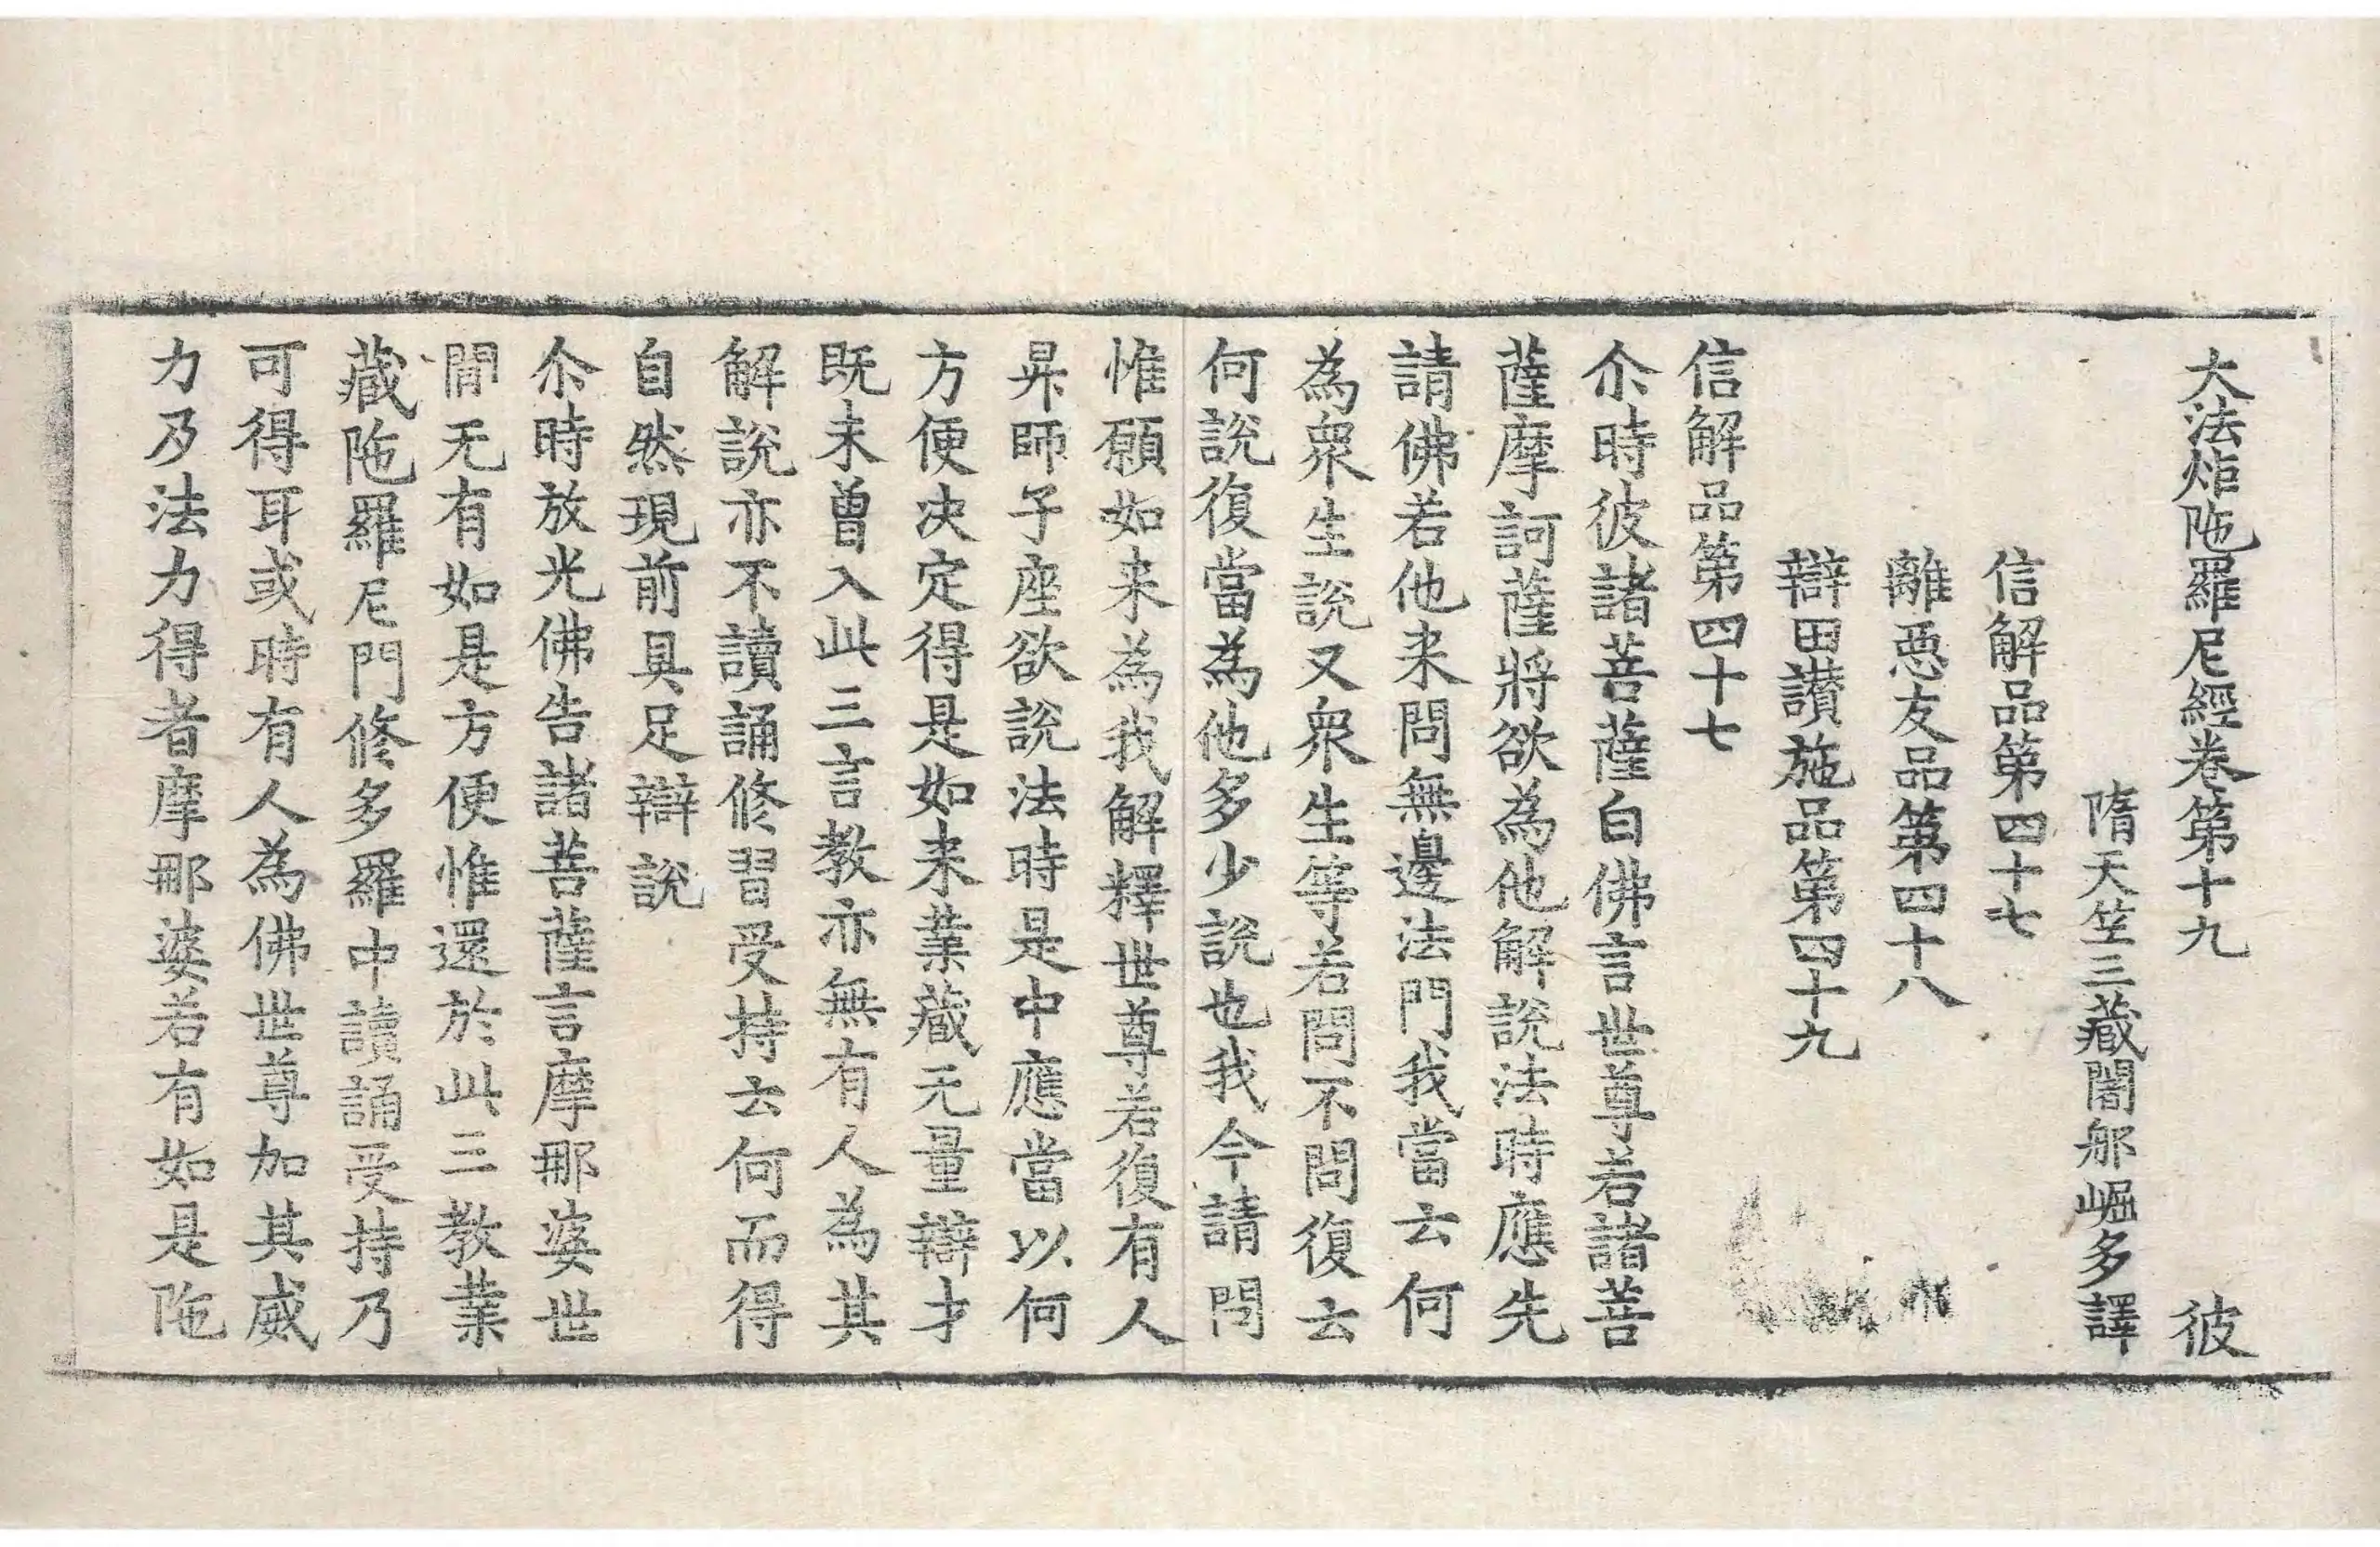 大法炬陁羅尼經卷第十九 彼
隋天竺三藏闍那崛多譯
信解品第四十七
離惡友品第四十八
辯田讃施品第四十九
信解品第四十七
尒時彼諸菩薩白佛言世尊若諸菩
薩摩訶薩將欲為他解説法時應先
請佛若他来問無邊法門我當云何
為衆生説又衆生等若問不問復云
何説復當為他多少説也我今請問
惟願如来為我解釋世尊若復有人
昇師子座欲説法時是中應當以何
方便决定得是如来業藏无量辯才
既未曾入此三言教亦無有人為其
解説亦不讀誦修習受持云何而得
自然現前具足辯説
尒時放光佛告諸菩薩言摩那婆世
間无有如是方便惟還於此三教業
藏陁羅尼門修多羅中讀誦受持乃
可得耳或時有人為佛世尊加其威
力及法力得者摩那婆若有如是陁